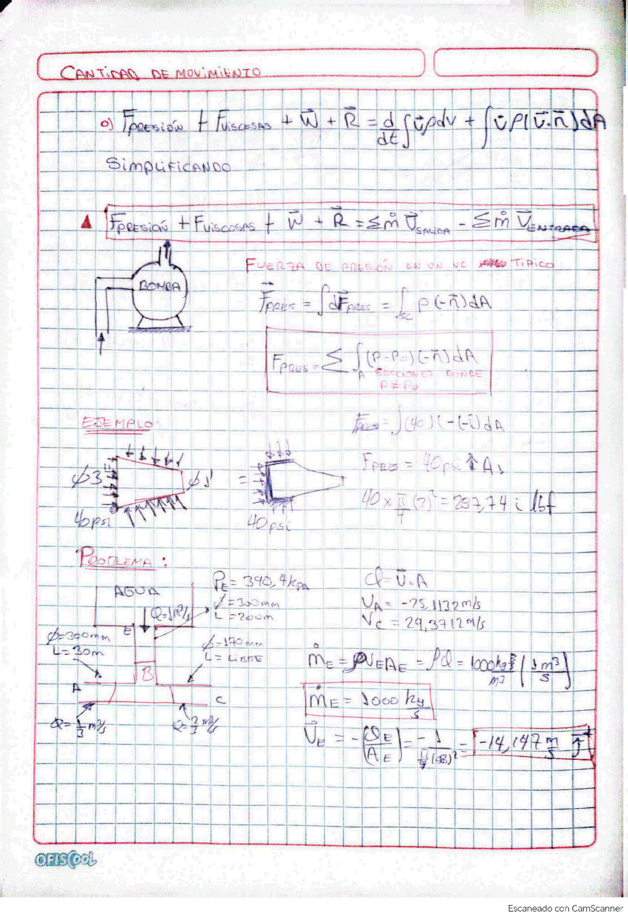 CANTIDAD DE MOVIMIENTO
o) F⃗PRESIÓN + FVISCOSAS + W⃗ + R⃗ = d/dt ∫ v⃗ρdv + ∫ v⃗ρ(v⃗.n⃗)dA
SIMPLIFICANDO
FPRESIÓN + FVISCOSAS + W⃗ + R⃗ = Σṁ V⃗SALIDA - Σṁ V⃗ENTRADA
BOMBA
FUERZA DE PRESIÓN EN UN VC TIPICO
F⃗PRES = ∫dF⃗PRES = ∫sc P(-n⃗)dA
FPRES = Σ ∫A (P-P0)(-n⃗)dA
DONDE
P≠P0
EJEMPLO:
FPRES = ∫(40)(-(-i)dA
φ3" φ1" =
FPRES = 40psi A1
40psi 40psi
40 × π/4 (3)² = 282,74 i lbf
PROBLEMA:
AGUA
Q=1m³/s
E
PE = 390,4kPa
φ=300mm
L=200m
φ=300mm
L=30m
φ=170mm
L=
B
A
C
Q=1/3 m³/s
Q=2/3 m³/s
Q = V⃗.A
VA = -25,1132m/s
VC = 29,3712m/s
ṁE = ρVEAE = ρQ = 1000kg/m³ (1m³/s)
ṁE = 1000 kg/s
V⃗E = -(QE/AE) = -1/(π/4(.3)²) = -14,147 m/s j⃗
OFISCOOL
Escaneado con CamScanner